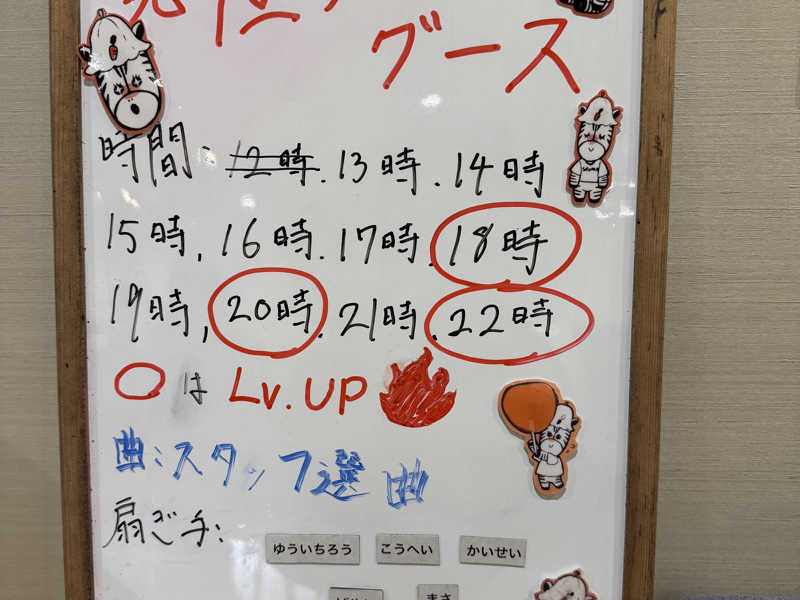 グース
時間:12時.13時.14時
15時,16時.17時.18時
19時,20時.21時.22時
○はLv.UP
曲:スタッフ選曲
扇ぎ手:
ゆういちろう こうへい かいせい
まさ